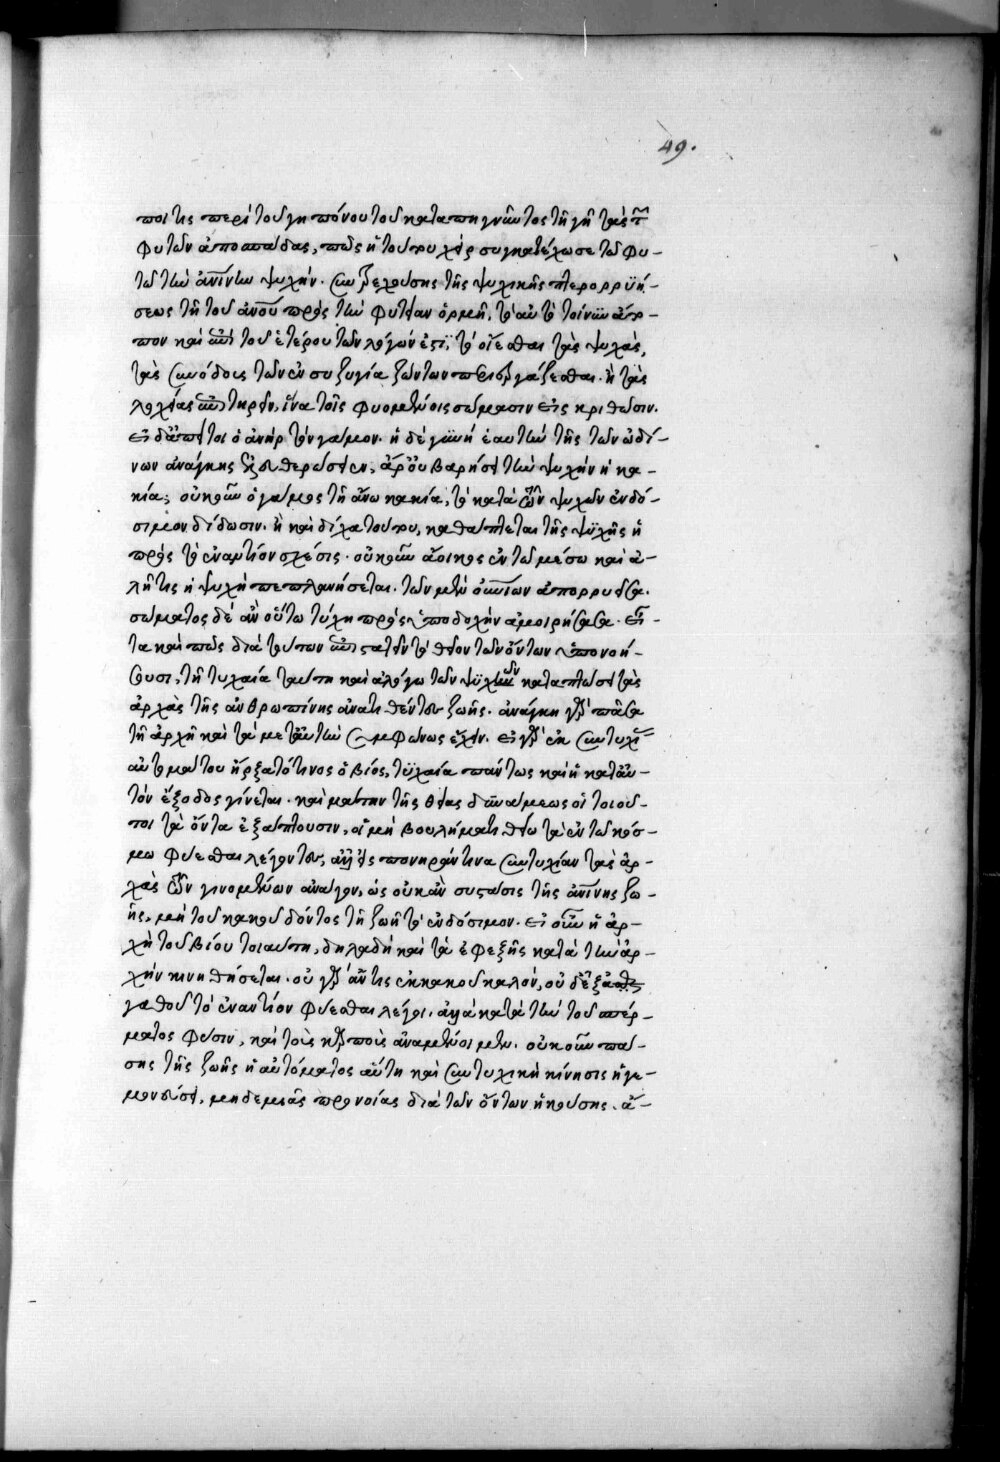 ποι τίς περὶ τοῦ γηπόνου τοῦ καταπηγνῦντος τῇ γῇ τὰς τῶν
φυτῶν ἀποσπάδας, πῶς ἡ τούτου χεὶρ συγκατέχωσε τῷ φυ-
τῷ τὴν ἀνίνην ψυχήν. συντρεχούσης τῆς ψυχικῆς πτερορρϋή-
σεως τῇ τοῦ ἀνου πρὸς τὴν φυτείαν ὁρμῇ. τὸ αὐτὸ τοίνυν ἄτο-
πον καὶ ἐπὶ τοῦ ἑτέρου τῶν λόγων ἐστὶ, τὸ οἴεσθαι τὰς ψυχὰς,
τὰς συνόδους τῶν ἐν συζυγία ζώντων περιεργάζεσθαι. ἢ τὰς
λοχείας ἐπιτηρεῖν, ἵνα τοῖς φυομένοις σώμασιν εἰς κριθῶσιν.
εἰ δὲ ἀπείποι ὁ ἀνὴρ τὸν γάμον. ἡ δὲ γυνὴ ἑαυτὴν τῆς τῶν ὠδί-
νων ἀνάγκης ἐλευθερώσειεν, ἆρ' οὐ βαρήσει τὴν ψυχὴν ἡ κα-
κία; οὐκοῦν ὁ γάμος τῇ ἄνω κακία, τὸ κατὰ τῶν ψυχῶν ἐνδό-
σιμον δίδωσιν. ἢ καὶ δίχα τούτου, καθάπτεται τῆς ψυχῆς ἡ
πρὸς τὸ ἐναντίον σχέσις. οὐκοῦν ἄοικος ἐν τῷ μέσω καὶ ἀ-
λήτις ἡ ψυχὴ πεπλανήσεται. τῶν μὲν οὐνίων ἀπορρυεῖσα.
σώματος δὲ ἂν οὕτω τύχη πρὸς ὑποδοχὴν ἀμοιρήσασα. εἶ-
τα καὶ πῶς διὰ τούτων ἐπιστατεῖν τὸ θεῖον τῶν ὄντων ὑπονοή-
σουσι, τῇ τυχαία ταύτη καὶ ἀλόγω τῶν ψυχῶν καταπτώσει τὰς
ἀρχὰς τῆς ἀνθρωπίνης ἀνατιθέντες ζωῆς. ἀνάγκη γὰρ πᾶσα
τῇ ἀρχῇ καὶ τὰ μετ' αὐτὴν συμφώνως ἔχειν. εἰ γὰρ ἐκ συντυχίας
αὐτομάτου ἤρξατό τινος ὁ βίος, τυχαία πάντως καὶ ἡ κατ' αὐ-
τὸν ἔξοδος γίνεται. καὶ μάτην τῆς θείας δυνάμεως οἱ τοιοῦ-
τοι τὰ ὄντα ἐξάπτουσιν, οἱ μὴ βουλήματι θείω τὰ ἐν τῷ κόσ-
μω φύεσθαι λέγοντες, ἀλλ' εἰς πονηράν τινα συντυχίαν τὰς ἀρ-
χὰς τῶν γινομένων ἀνάγειν, ὡς οὐκ ἂν συστάσης τῆς ἀνίνης ζω-
ῆς, μὴ τοῦ κακοῦ δόντος τῇ ζωῇ τὸ ἐνδόσιμον. εἰ οὖν ἡ ἀρ-
χὴ τοῦ βίου τοιαύτη, δηλαδὴ καὶ τὰ ἐφεξῆς κατὰ τὴν ἀρ-
χὴν κινηθήσεται. οὐ γὰρ ἄν τις ἐκ κακοῦ καλόν, οὐ δὲ ἐξ ἀ
γαθοῦ τὸ ἐναντίον φύεσθαι λέγοι. ἀλλὰ κατὰ τὴν τοῦ σπέρ-
ματος φύσιν, καὶ τοὺς καρποὺς ἀναμένομεν. οὐκοῦν πά-
σης τῆς ζωῆς ἡ αὐτόματος αὕτη καὶ συντυχικὴ κίνησις ἡγε-
μονεύσει, μηδεμιᾶς προνοίας διὰ τῶν ὄντων ἡκούσης. ἀ-
49.